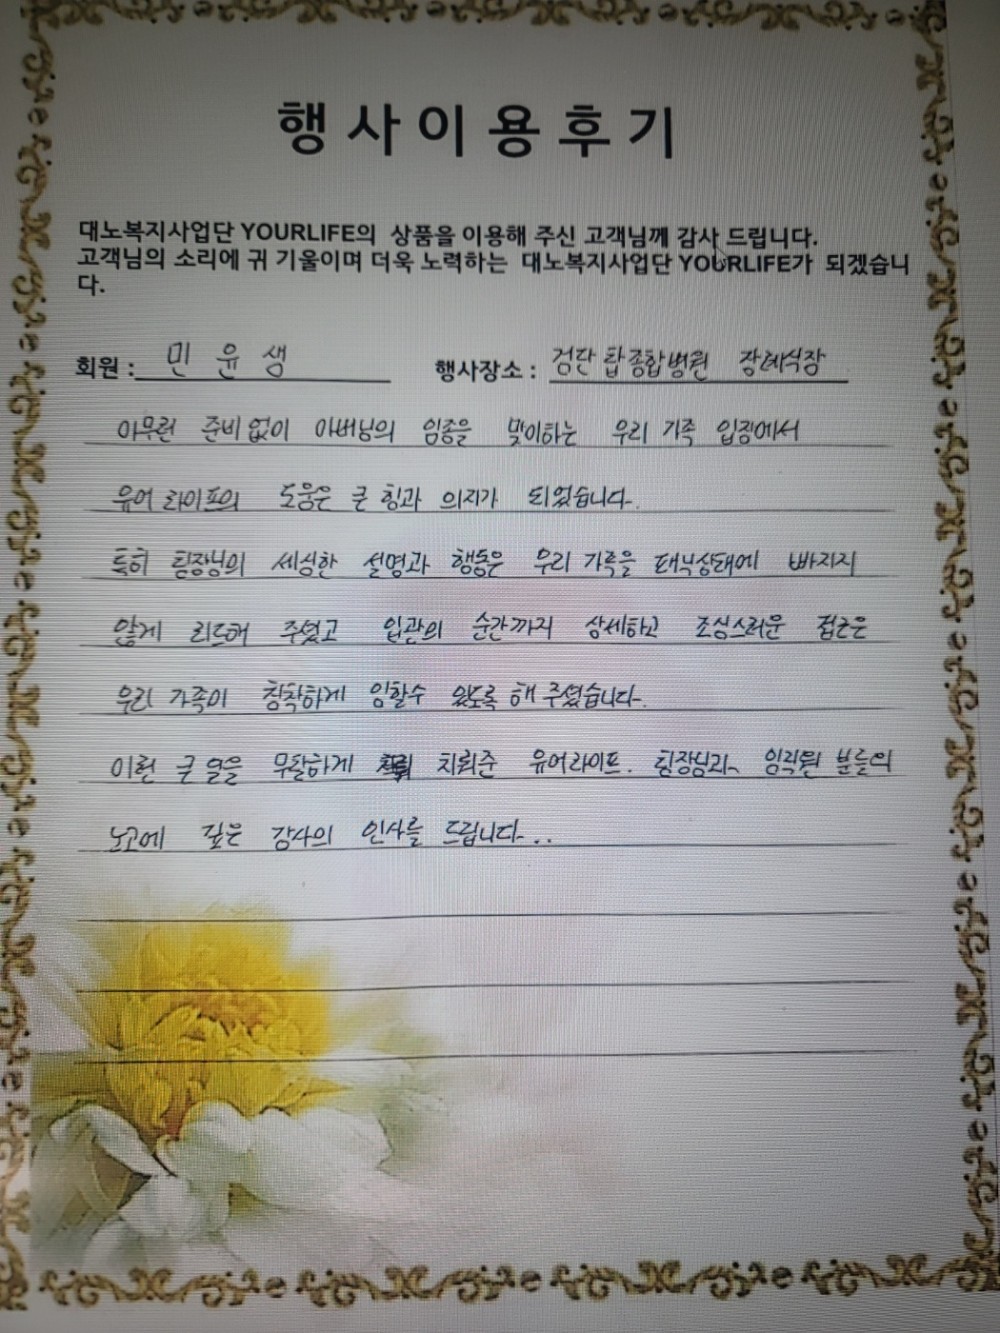 행사이용후기
대노복지사업단 YOURLIFE의 상품을 이용해 주신 고객님께 감사 드립니다.
고객님의 소리에 귀 기울이며 더욱 노력하는 대노복지사업단 YOURLIFE가 되겠습니
다.
회원 : 민윤샘 행사장소 : 검단탑종합병원 장례식장
아무런 준비없이 아버님의 임종을 맞이하는 우리 가족 입장에서
유어라이프의 도움은 큰 힘과 의지가 되었습니다.
특히 팀장님의 세심한 설명과 행동은 우리 가족을 패닉상태에 빠지지
않게 리드해 주셨고 입관의 순간까지 상세하고 조심스러운 접근은
우리 가족이 침착하게 임할수 있도록 해 주셨습니다.
이런 큰 일을 무탈하게 치뤄준 유어라이프. 팀장님과 임직원 분들의
노고에 깊은 감사의 인사를 드립니다..